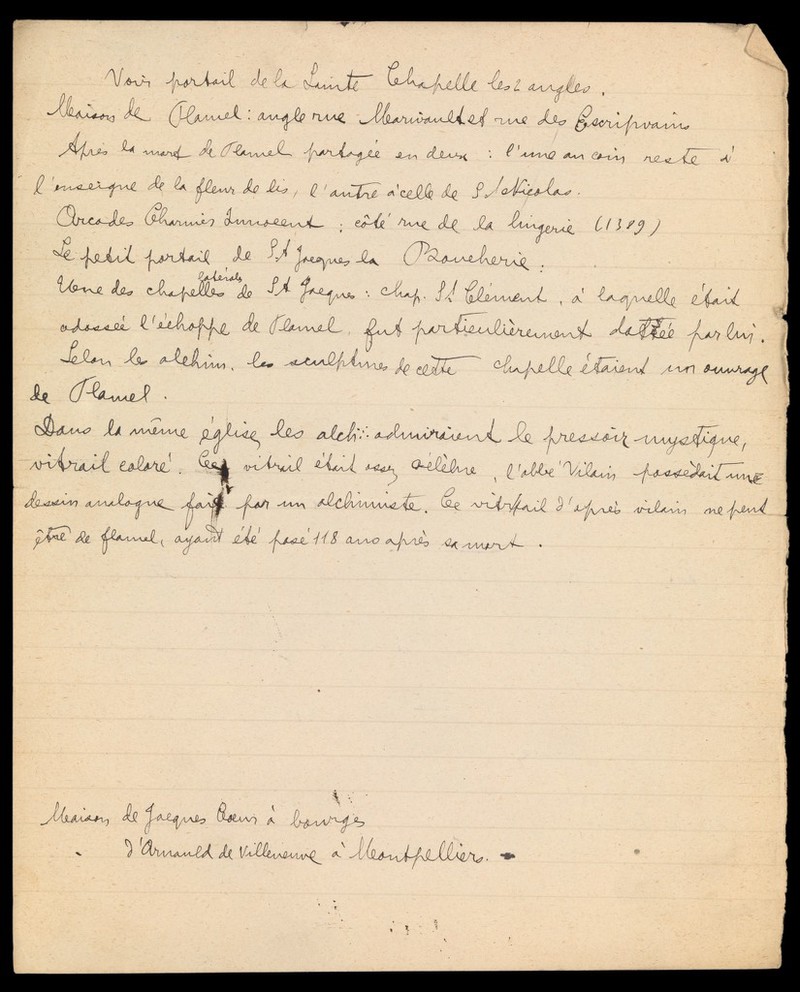 Voir portail de la Sainte Chapelle les 2 angles.
Maison de Flamel : angle rue Marivault et rue des Escripvains
Après la mort de Flamel partagée en deux : l'une au coin reste à
l'enseigne de la fleur de lis, l'autre à celle de St Nicolas.
Arcades Charnis Innocent ; côté rue de la lingerie (1389)
Le petit portail de St Jacques la Boucherie ;
Une des chapelles latérales de St Jacques : chap. St Clément, à laquelle était
adossée l'échoppe de Flamel, fut particulièrement dottée par lui.
Selon les alchim. les sculptures de cette chapelle étaient un ouvrage
de Flamel.
Dans la même église, les alch... admiraient le pressoir mystique,
vitrail coloré. Ce vitrail était assez célèbre, l'abbé Vilain possédait un
dessin analogue fait par un alchimiste. Ce vitrail d'après vilain ne peut
être de flamel, ayant été posé 118 ans après sa mort.
Maison de Jacques Coeur à bourges
d'Arnauld de Villeneuve à Montpelliers.